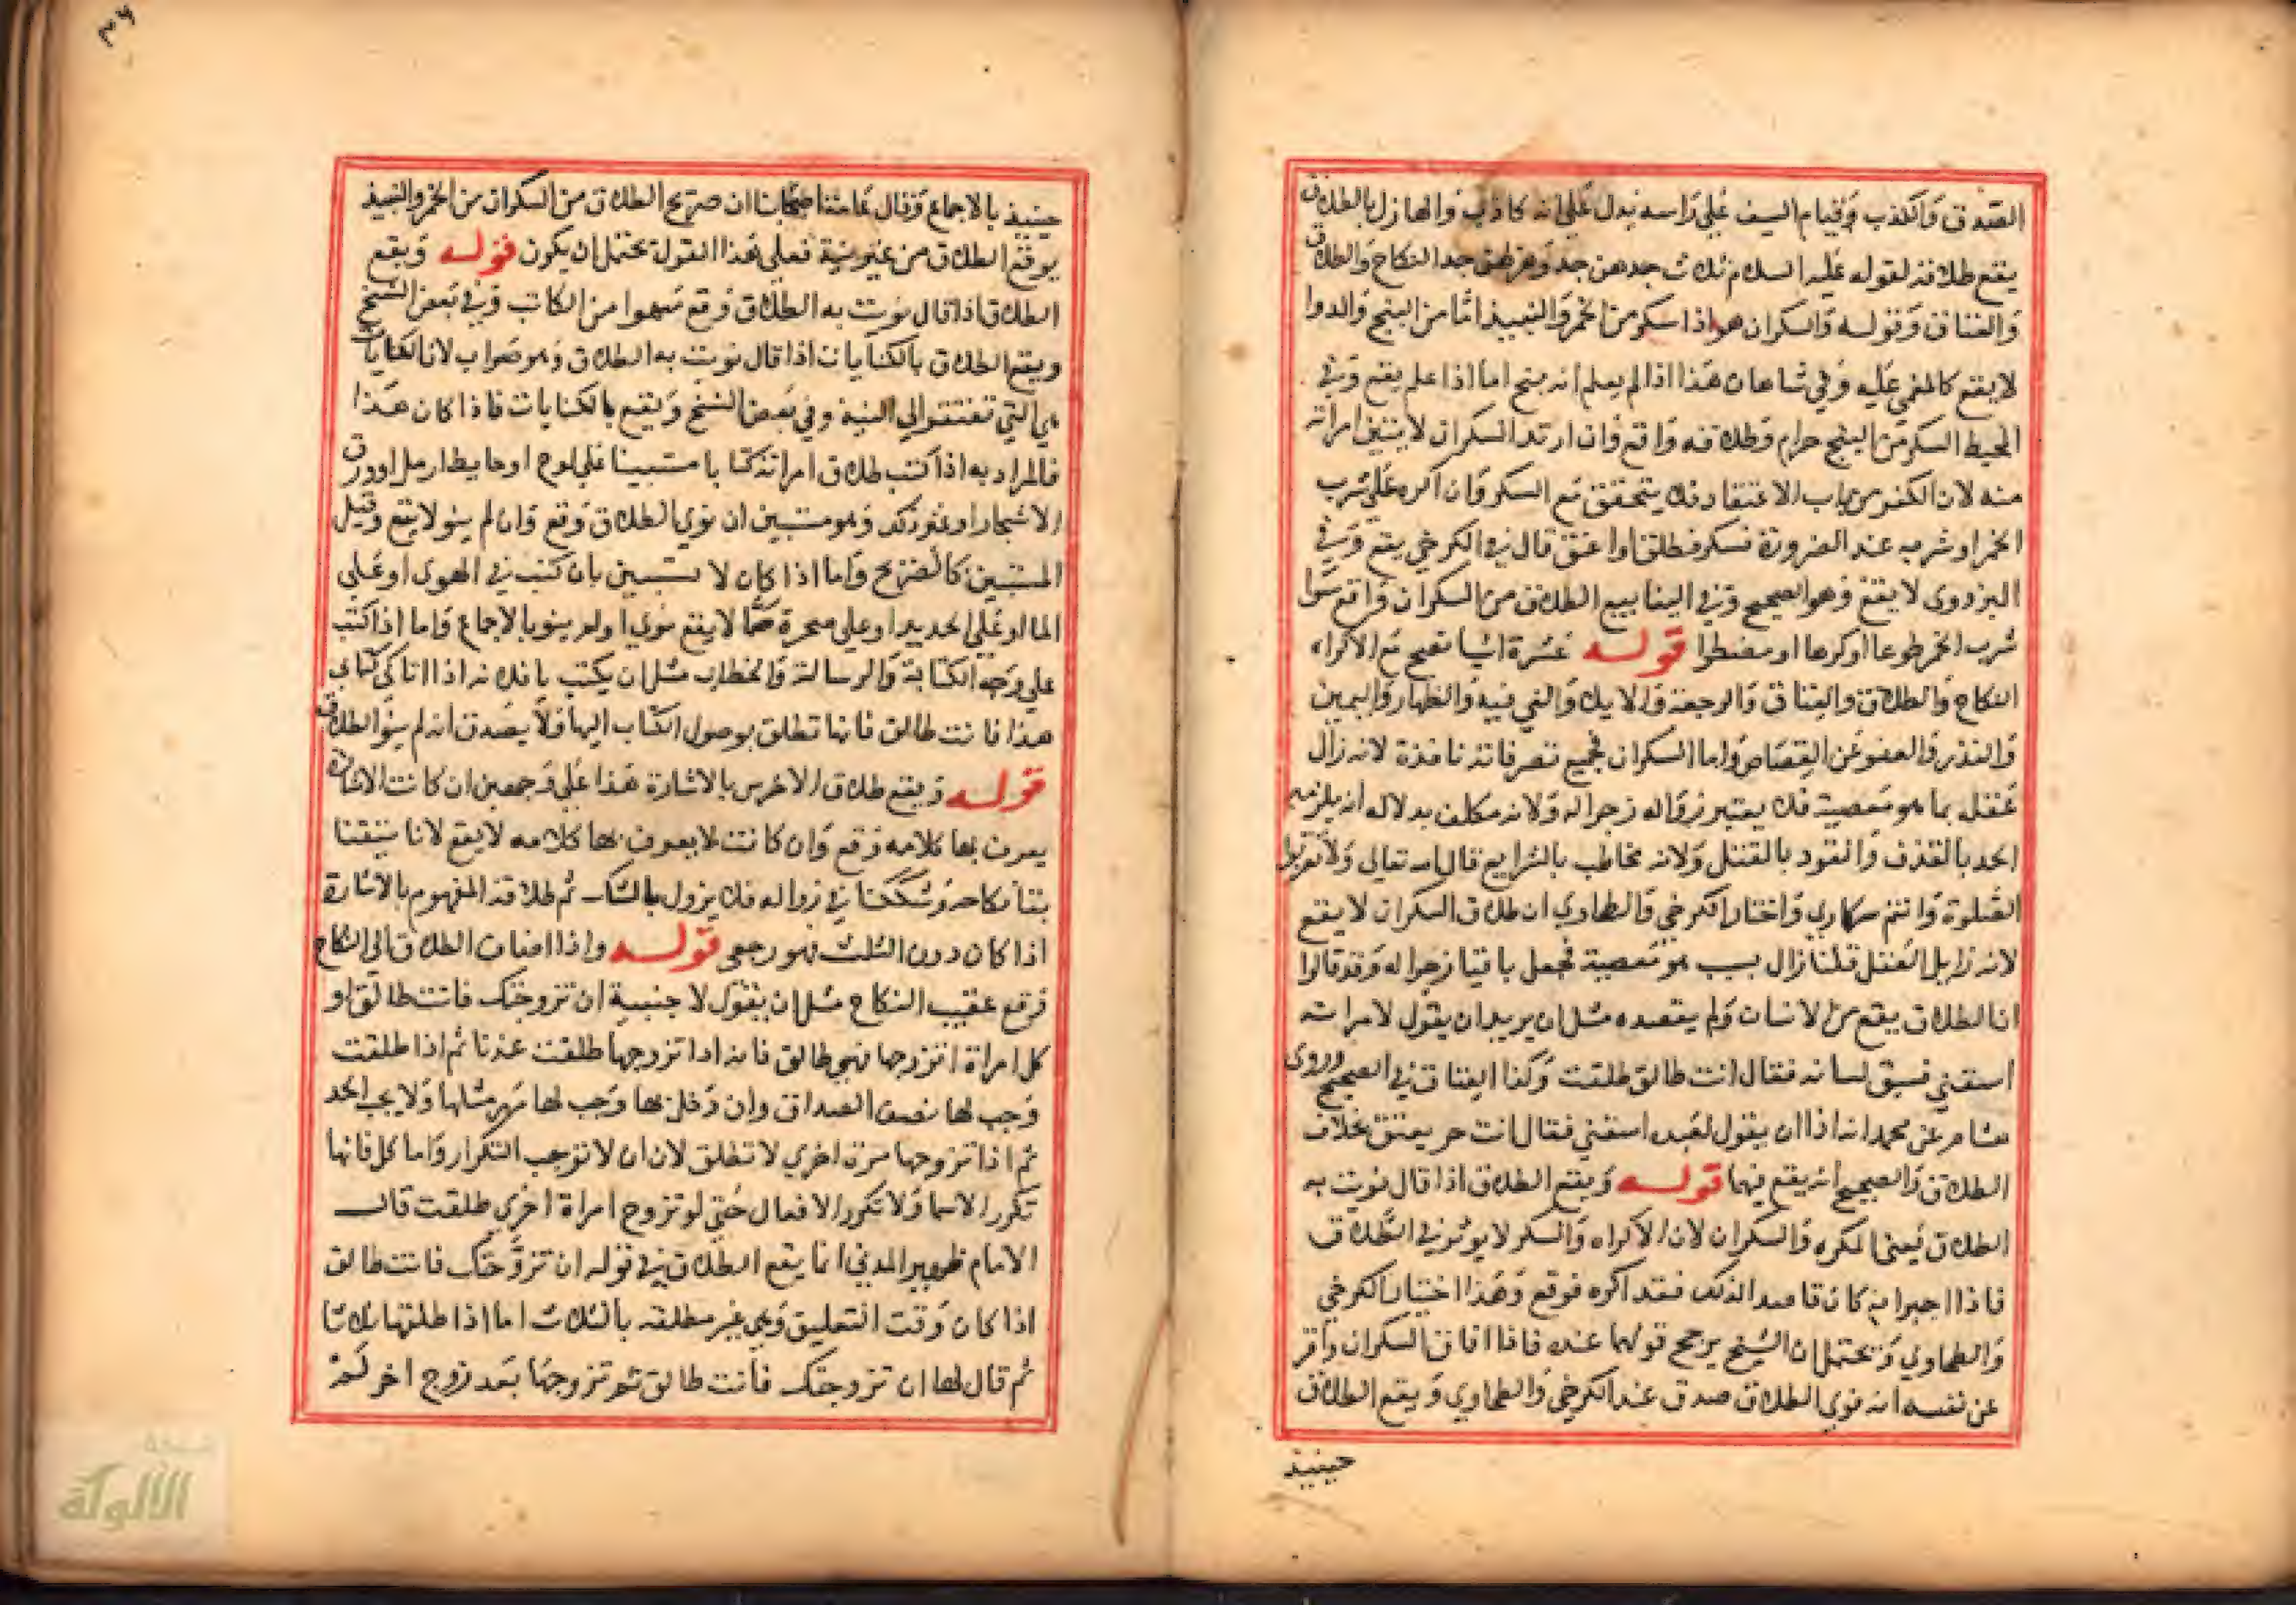 الصدق والكذب وقيام السيف على راسه يدل على انه كاذب والهازل بالطلاق
يقع طلاقه لقوله عليه السلام ثلاث جدهن جد وهزلهن جد النكاح والطلاق
والعتاق وقوله والسكران هو اذا سكر من الخمر والنبيذ اما من البنج والدوا
لا يقع كالمغمى عليه وفي شاهان هذا اذا لم يعلم انه بنج اما اذا علم يقع وفي
المحيط السكر من البنج حرام وطلاقه واقع وان ارتد السكران لا تبين امراته
منه لان الكفر من باب الاعتقاد فلا يتحقق مع السكر وان اكره على شرب
الخمر او شربه عند الضرورة فسكر فطلق او اعتق قال في الكرخي يقع وفي
البزدوي لا يقع وهو الصحيح وفي الينابيع الطلاق من السكران واقع سوا
شرب الخمر طوعا او كرها او مضطرا قوله عشرة اشيا تصح مع الاكراه
النكاح والطلاق والعتاق والرجعة والايلا والفي فيه والظهار واليمين
والنذر والعفو عن القصاص واما السكران فجميع تصرفاته نافذة لانه زال
عقله بما هو معصية فلا يعتبر زواله زجرا له ولانه مكلف بدلاله انه يلزمه
الحد بالقذف والقود بالقتل ولانه مخاطب بالشرايع قال الله تعالى ولا تقربوا
الصلوة وانتم سكارى واختار الكرخي والطحاوي ان طلاق السكران لا يقع
لانه زايل العقل قلنا زال بسبب هو معصية فجعل باقيا زجرا له وقد قالوا
ان الطلاق يقع من الانسان ولم يقصده مثل ان يريد ان يقول لامراته
اسقني فسبق لسانه فقال انت طالق طلقت وكذا العتاق في الصحيح وروى
هشام عن محمد انه اذا ان يقول لعبده اسقني فقال انت حر يعتق بخلاف
الطلاق والصحيح انه يقع فيهما قوله ويقع الطلاق اذا قال نويت به
الطلاق يعني المكره والسكران لان الاكراه والسكر لا يوثر في الطلاق
فاذا اخبر انه كان قاصدا لذلك فقد اكره فوقع وهذا اختيار الكرخي
والطحاوي ويحتمل ان الشيخ يرجح قولهما عنده فاذا افاق السكران واقر
عن نفسه انه نوى الطلاق صدق عند الكرخي والطحاوي ويقع الطلاق
حينيذ
٣٦
حينيذ بالاجماع وقال عامة اصحابنا ان صريح الطلاق من السكران من الخمر والنبيذ
يوقع الطلاق من غير نية فعلى هذا القول يحتمل ان يكون قوله ويقع
الطلاق اذا قال نويت به الطلاق وقع سهوا من الكاتب وفي بعض النسخ
ويقع الطلاق بالكنايات اذا قال نويت به الطلاق وهو صواب لان الكنايات
هي التي تفتقر الى النية وفي بعض النسخ ويقع بالكنايات فاذا كان هكذا
فالمراد به اذا كتب طلاق امراته كتابا مستبينا على لوح او حايط او رمل او ورق
الاشجار او غير ذلك وهو مستبين ان نوى الطلاق وقع وان لم ينو لا يقع وقيل
المستبين كالصريح واما اذا كان لا يستبين بان كتب في الهوى او على
الما او على الحديد او على صخرة صما لا يقع نوى او لم ينو بالاجماع واما اذا كتب
على وجه الكتابة والرسالة والخطاب مثل ان يكتب يا فلانه اذا اتاكي كتابي
هذا فانت طالق فانها تطلق بوصول الكتاب اليها ولا يصدق انه لم ينو الطلاق
قوله ويقع طلاق الاخرس بالاشارة هذا على وجهين ان كانت الاشارة
يعرف بها كلامه وقع وان كانت لا يعرف بها كلامه لا يقع لانا تيقنا
بتا نكاحه وشككنا في زواله فلا يزول بالشك ثم طلاقه المفهوم بالاشارة
اذا كان دون الثلث فهو رجعي قوله واذا اضاف الطلاق الى النكاح
وقع عقيب النكاح مثل ان يقول لاجنبية ان تزوجتك فانت طالق او
كل امراة اتزوجها فهي طالق فانه اذا تزوجها طلقت عندنا ثم اذا طلقت
وجب لها نصف الصداق وان دخل بها وجب لها مهر مثلها ولا يجب الحد
ثم اذا تزوجها مرة اخرى لا تطلق لان ان لا توجب التكرار واما كل فانها
تكرر الاسما ولا تكرر الافعال حتى لو تزوج امراة اخرى طلقت قال
الامام ظهير الدين انما يقع الطلاق في قوله ان تزوجتك فانت طالق
اذا كان وقت التعليق وهي غير مطلقه بالثلاث اما اذا طلقها ثلاثا
ثم قال لها ان تزوجتك فانت طالق ثم تزوجها بعد زوج اخر لم
شبكة
الألوكة